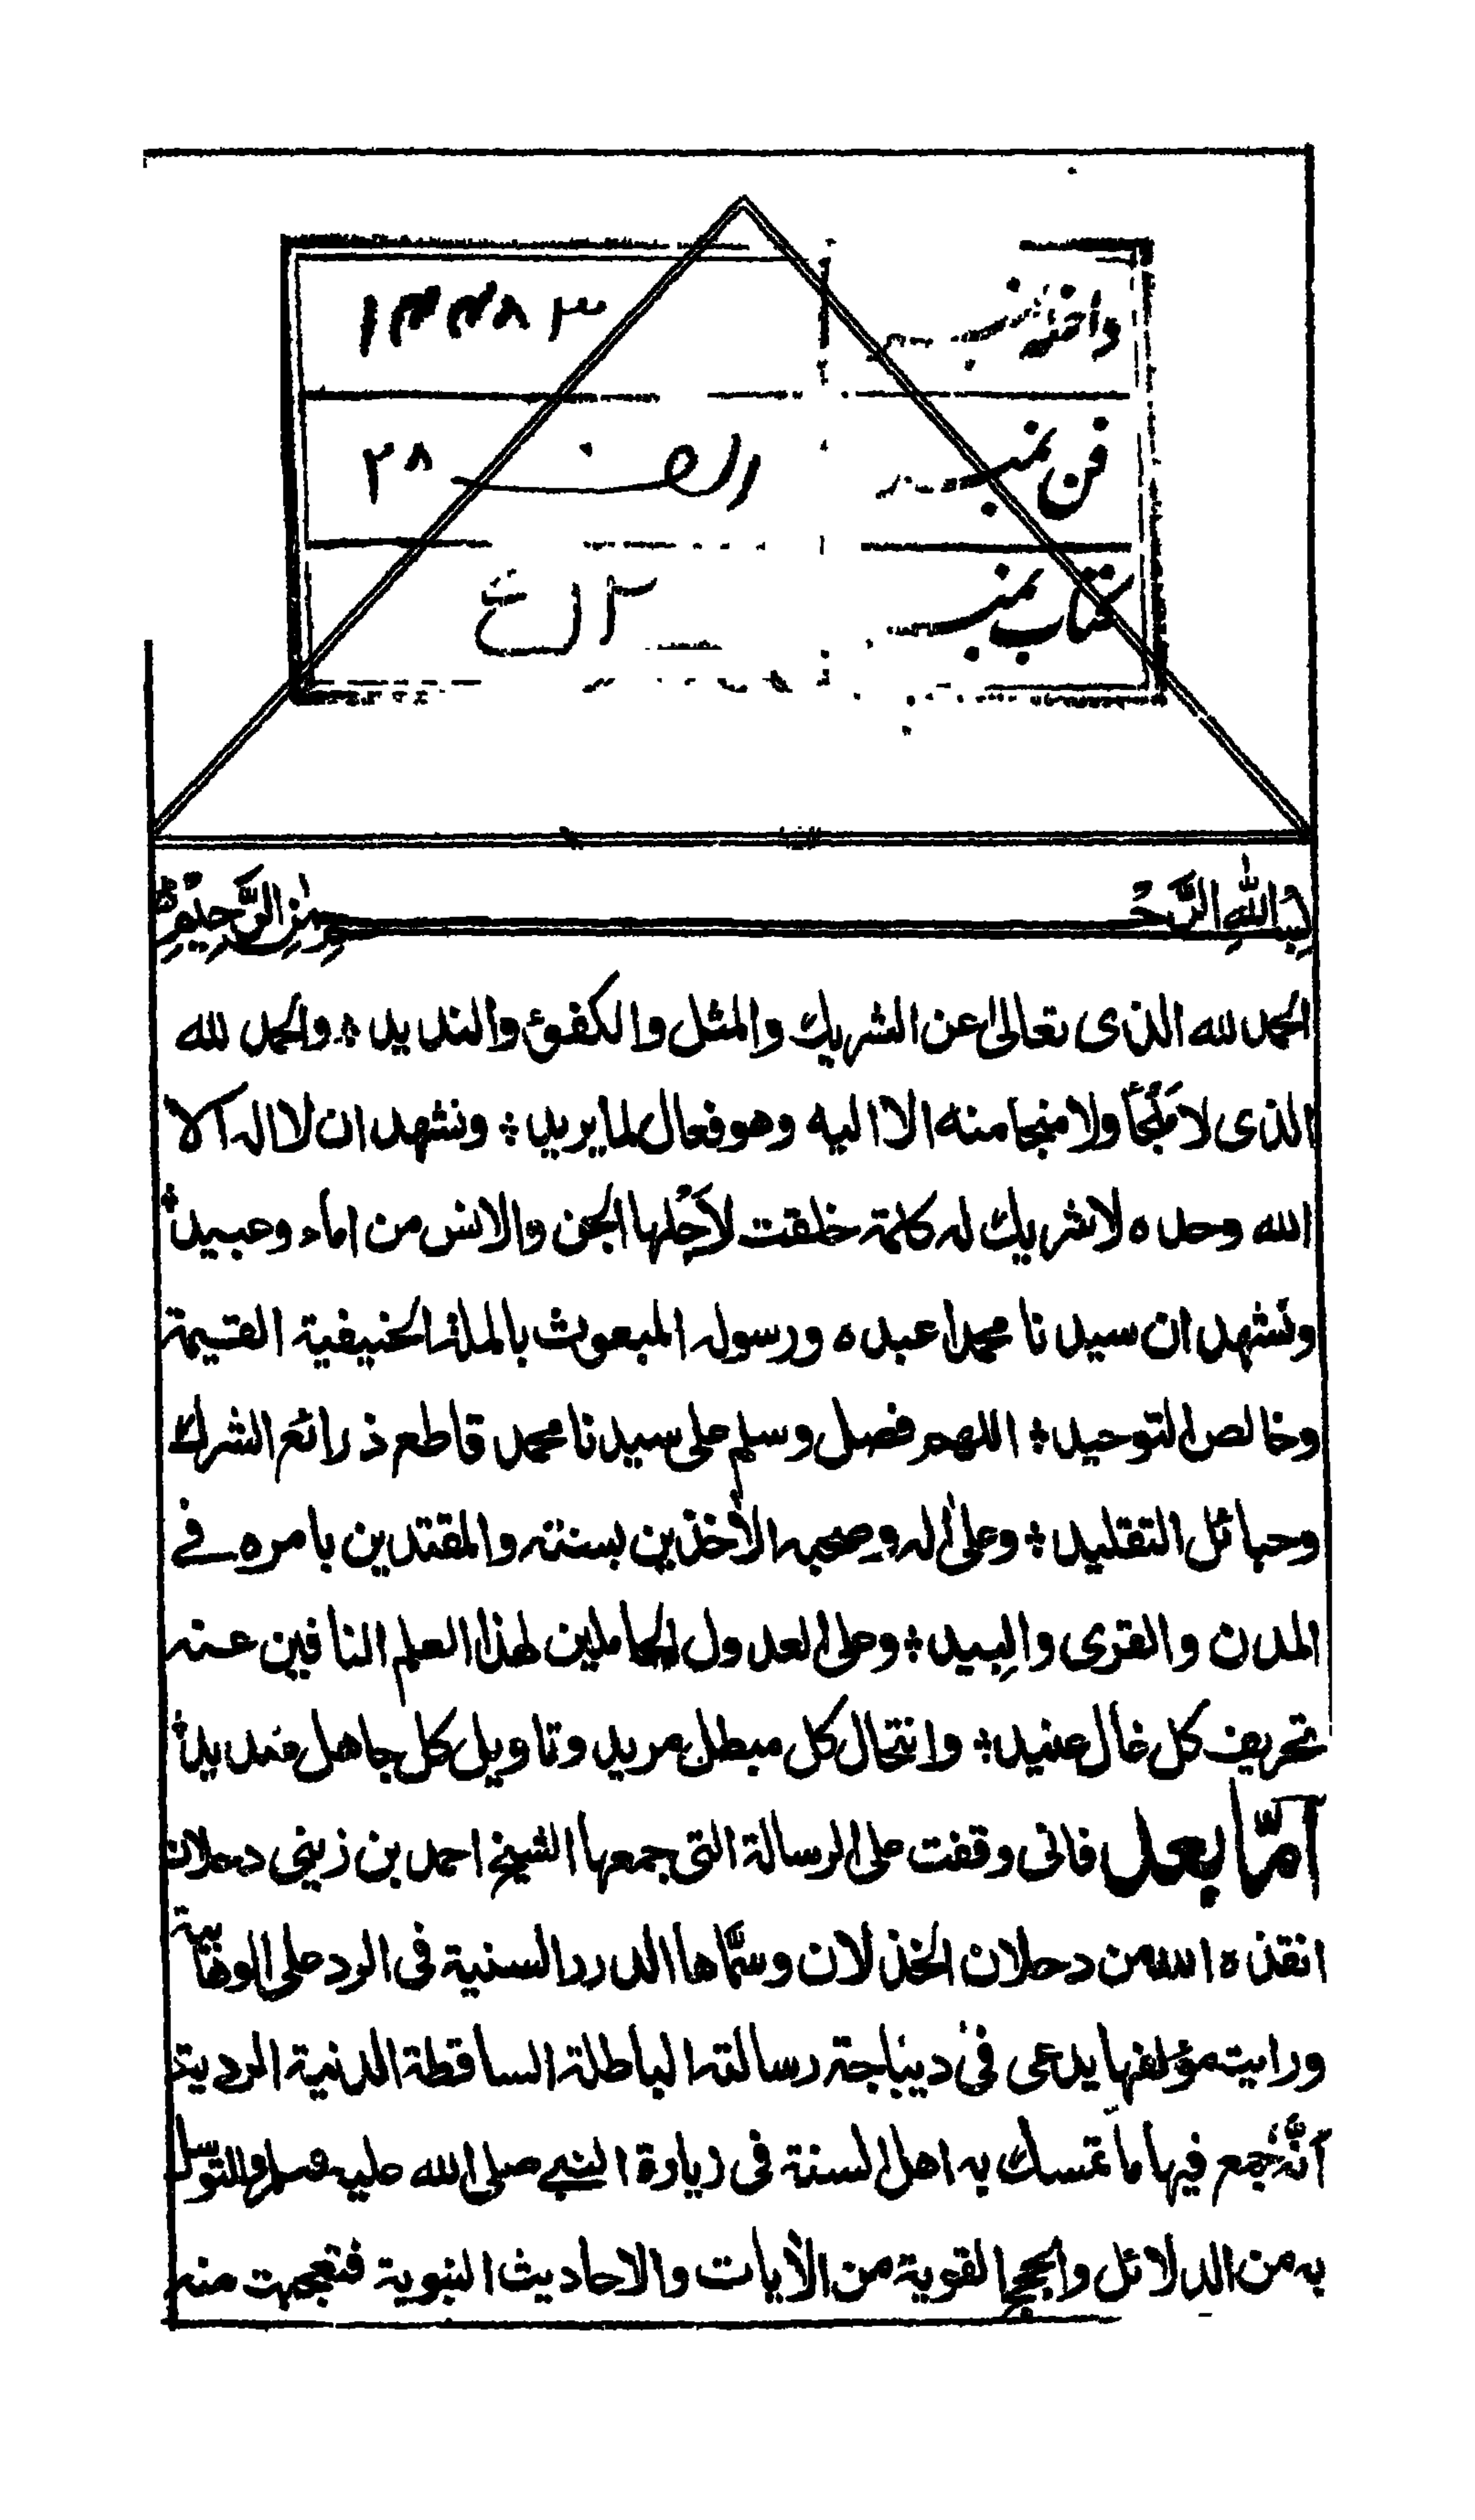 داخلہ نمبر ١٣٣٨٣
فن نمبر ٢٨
کتاب نمبر
بسم الله الرحمن الرحيم
الحمد لله الذى تعالىٰ عن الشريك والمثل والكفوئ والنديد ؛ والحمد لله
الذى لا مَلْجَأَ ولا منجا منه الا اليه وهو فعال لما يريد ؛ ونشهد ان لا اله الا
الله وحده لا شريك له كلمة خلقت لأجْلها الجن والانس من اماء وعبيد ؛
ونشهد ان سيدنا محمدا عبده ورسوله المبعوث بالملة الحنيفية القيمة
وخالص التوحيد ؛ اللهم فصل وسلم على سيدنا محمد قاطع ذرائع الشرك
وحبائل التقليد ؛ وعلىٰ اله وصحبه الأخذين بسنته والمقتدين بامره في
المدن والقرى والبيد ؛ وعلى العدول الحاملين لهذا العلم النافين عنه
تحريف كل غال عنيد ؛ وانتحال كل مبطل مريد وتاويل كل جاهل
أمّا بعد فانى وقفت على الرسالة التى جمعها الشيخ احمد بن زينى دحلان
انقذه الله من دحلان الخذلان وسمّاها الدرر السنية فى الرد على الوهّابية
ورايت مؤلفها يدعى فى ديباجة رسالته الباطلة الساقطة الدنية الردية
أنّه جمع فيها ما تمسك به اهل السنة فى زيارة النبي صلى الله عليه وسلم والتوسّل
به من الدلائل والحجج القوية من الأيات والاحاديث النبوية فتعجبت منه